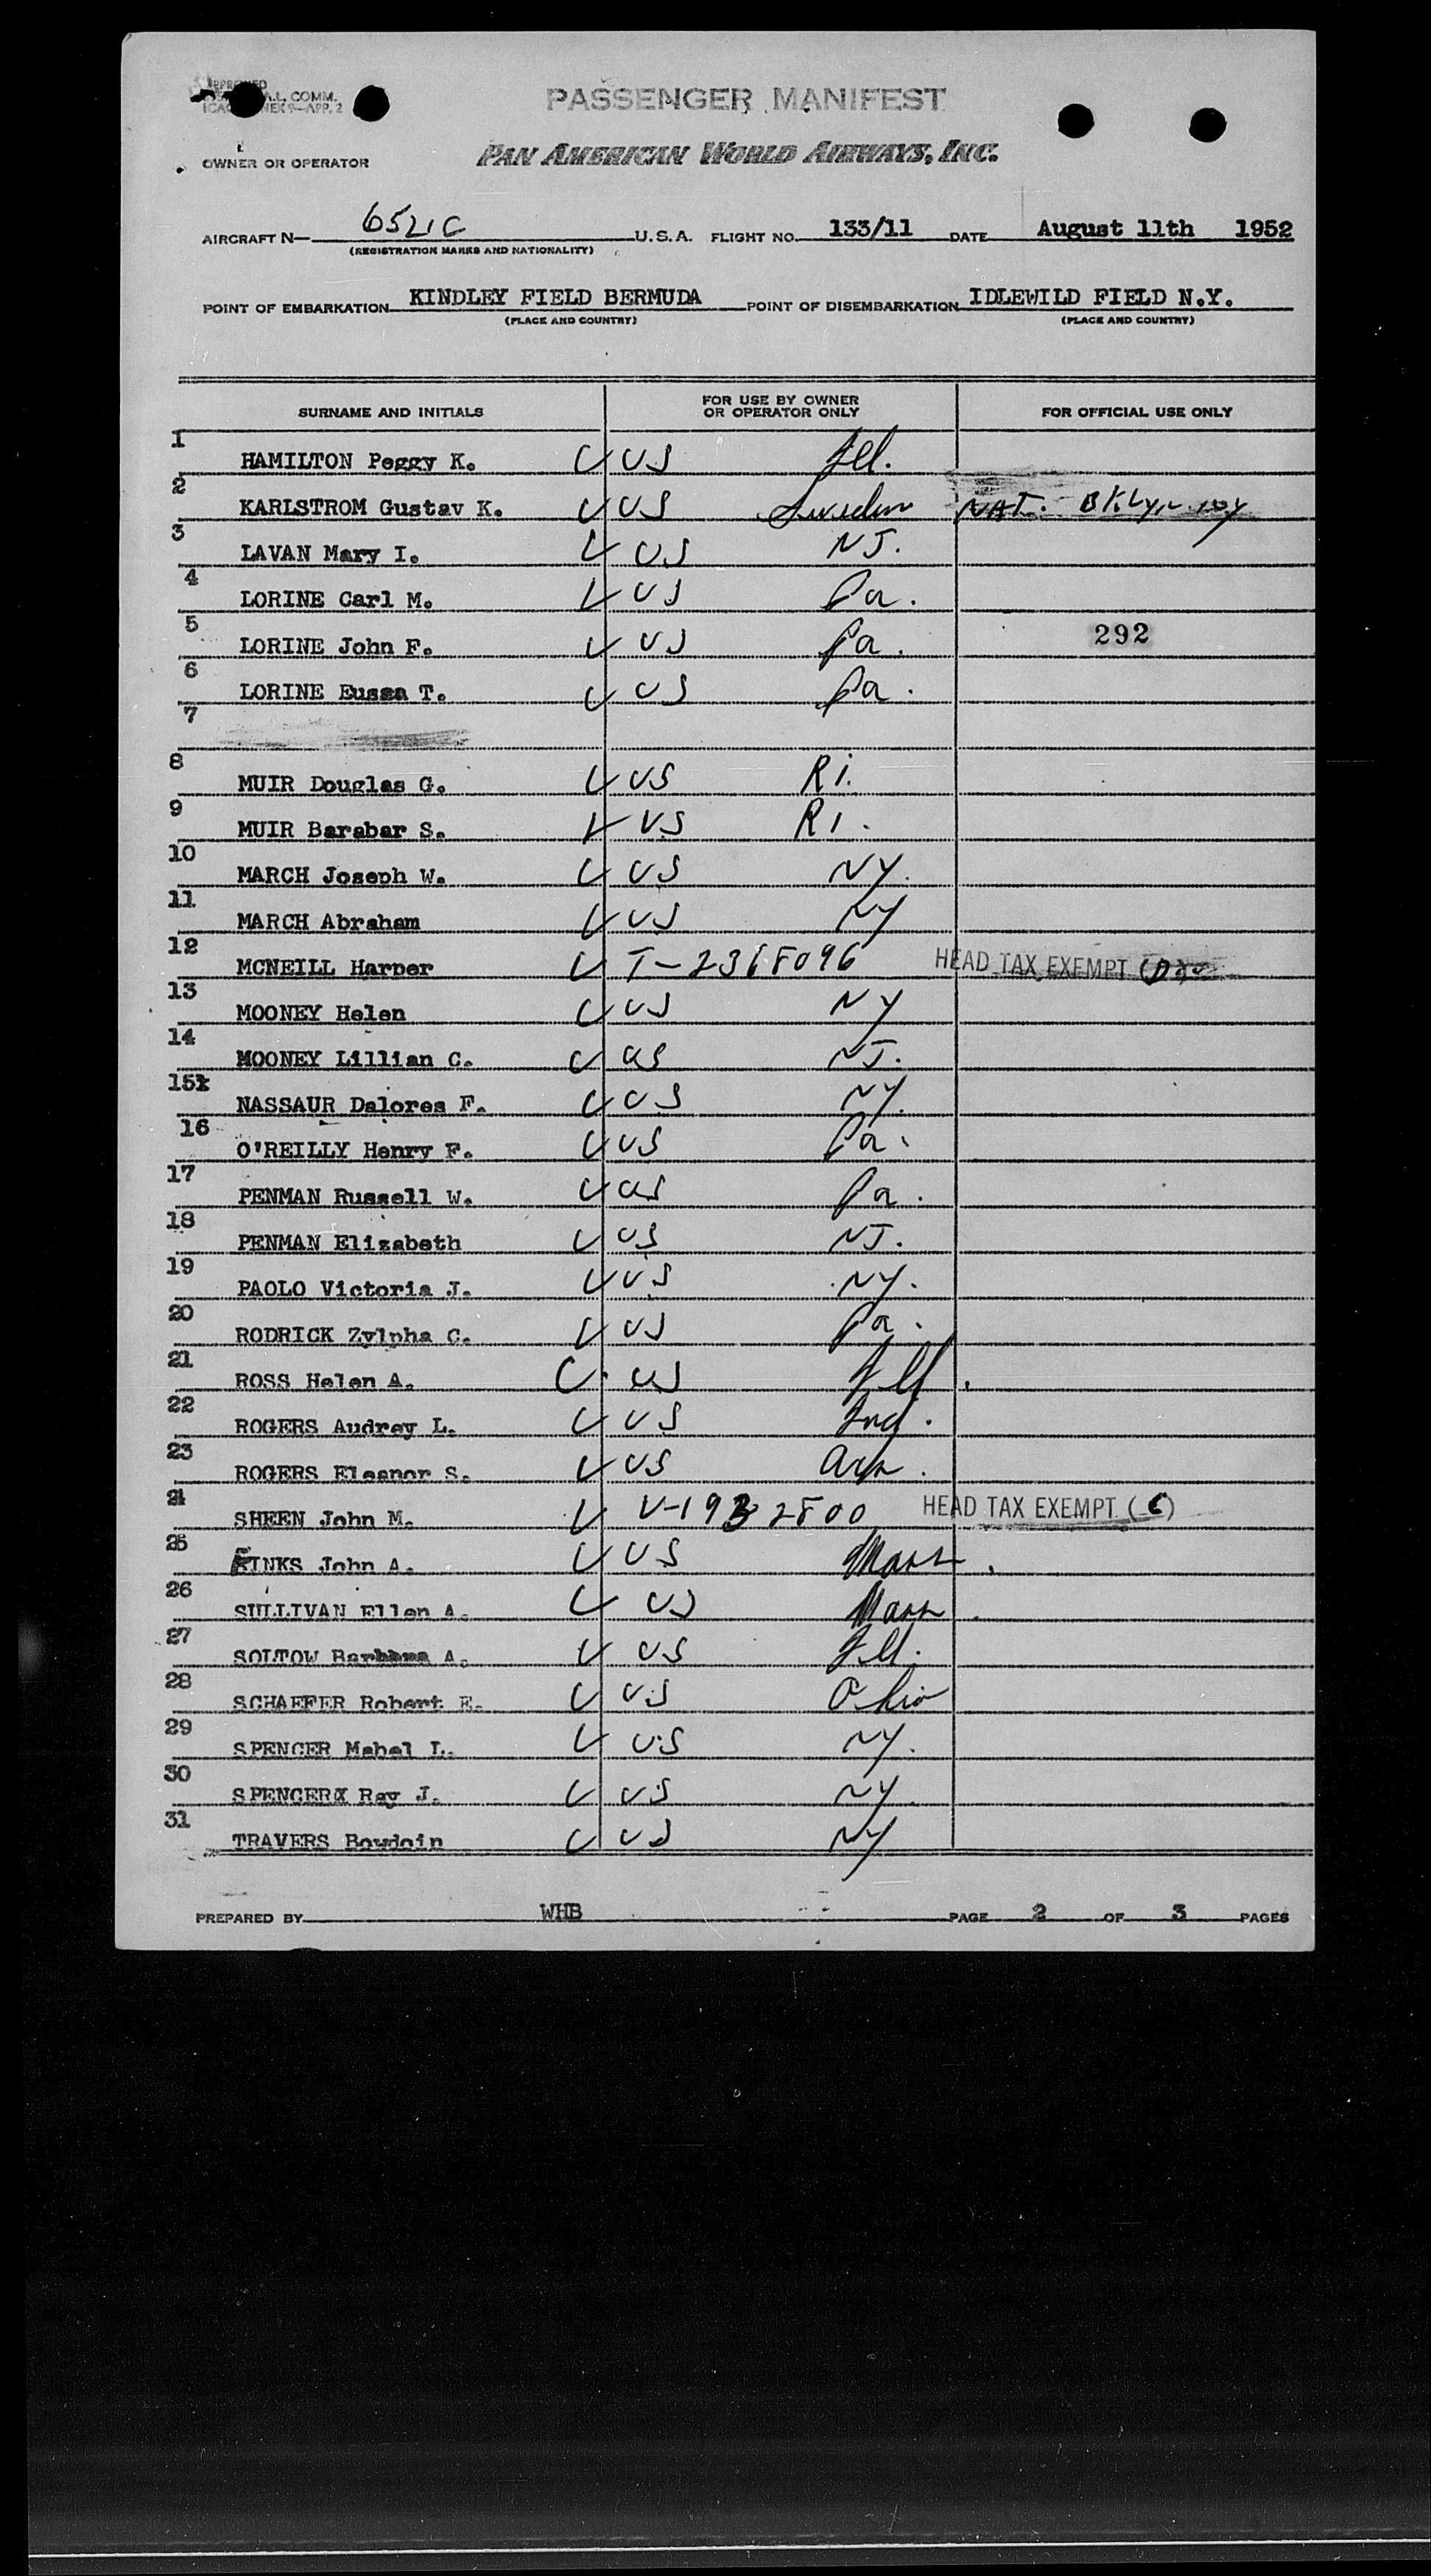 APPROVED
A.L. COMM.
ICAO ANNEX 9—APP. 2
PASSENGER MANIFEST
OWNER OR OPERATOR PAN AMERICAN WORLD AIRWAYS, INC.
AIRCRAFT N— 6521C U.S.A. FLIGHT NO. 133/11 DATE August 11th 1952
(REGISTRATION MARKS AND NATIONALITY)
POINT OF EMBARKATION KINDLEY FIELD BERMUDA POINT OF DISEMBARKATION IDLEWILD FIELD N.Y.
(PLACE AND COUNTRY) (PLACE AND COUNTRY)
SURNAME AND INITIALS FOR USE BY OWNER OR OPERATOR ONLY FOR OFFICIAL USE ONLY
1 HAMILTON Peggy K. US Ill.
2 KARLSTROM Gustav K. US Sweden NAT. BKLyn. NY
3 LAVAN Mary I. US NJ.
4 LORINE Carl M. US Pa.
5 LORINE John F. US Pa. 292
6 LORINE Eussa T. US Pa.
7
8 MUIR Douglas G. US RI.
9 MUIR Barabar S. US RI.
10 MARCH Joseph W. US NY.
11 MARCH Abraham US NY
12 MCNEILL Harper T-2368096 HEAD TAX EXEMPT (D)
13 MOONEY Helen US NY
14 MOONEY Lillian C. US NJ.
15x NASSAUR Dalores F. US NY.
16 O'REILLY Henry F. US Pa.
17 PENMAN Russell W. US Pa.
18 PENMAN Elizabeth US NJ.
19 PAOLO Victoria J. US NY.
20 RODRICK Zylpha C. US Pa.
21 ROSS Helen A. US Ill.
22 ROGERS Audrey L. US Ind.
23 ROGERS Eleanor S. US Ark.
24 SHEEN John M. V-1932800 HEAD TAX EXEMPT (C)
25 FINKS John A. US Mass.
26 SULLIVAN Ellen A. US Mass.
27 SOLTOW Barbara A. US Ill.
28 SCHAEFER Robert E. US Ohio
29 SPENCER Mabel L. US NY.
30 SPENCERX Ray J. US NY.
31 TRAVERS Bowdoin US NY
PREPARED BY WHB PAGE 2 OF 3 PAGES